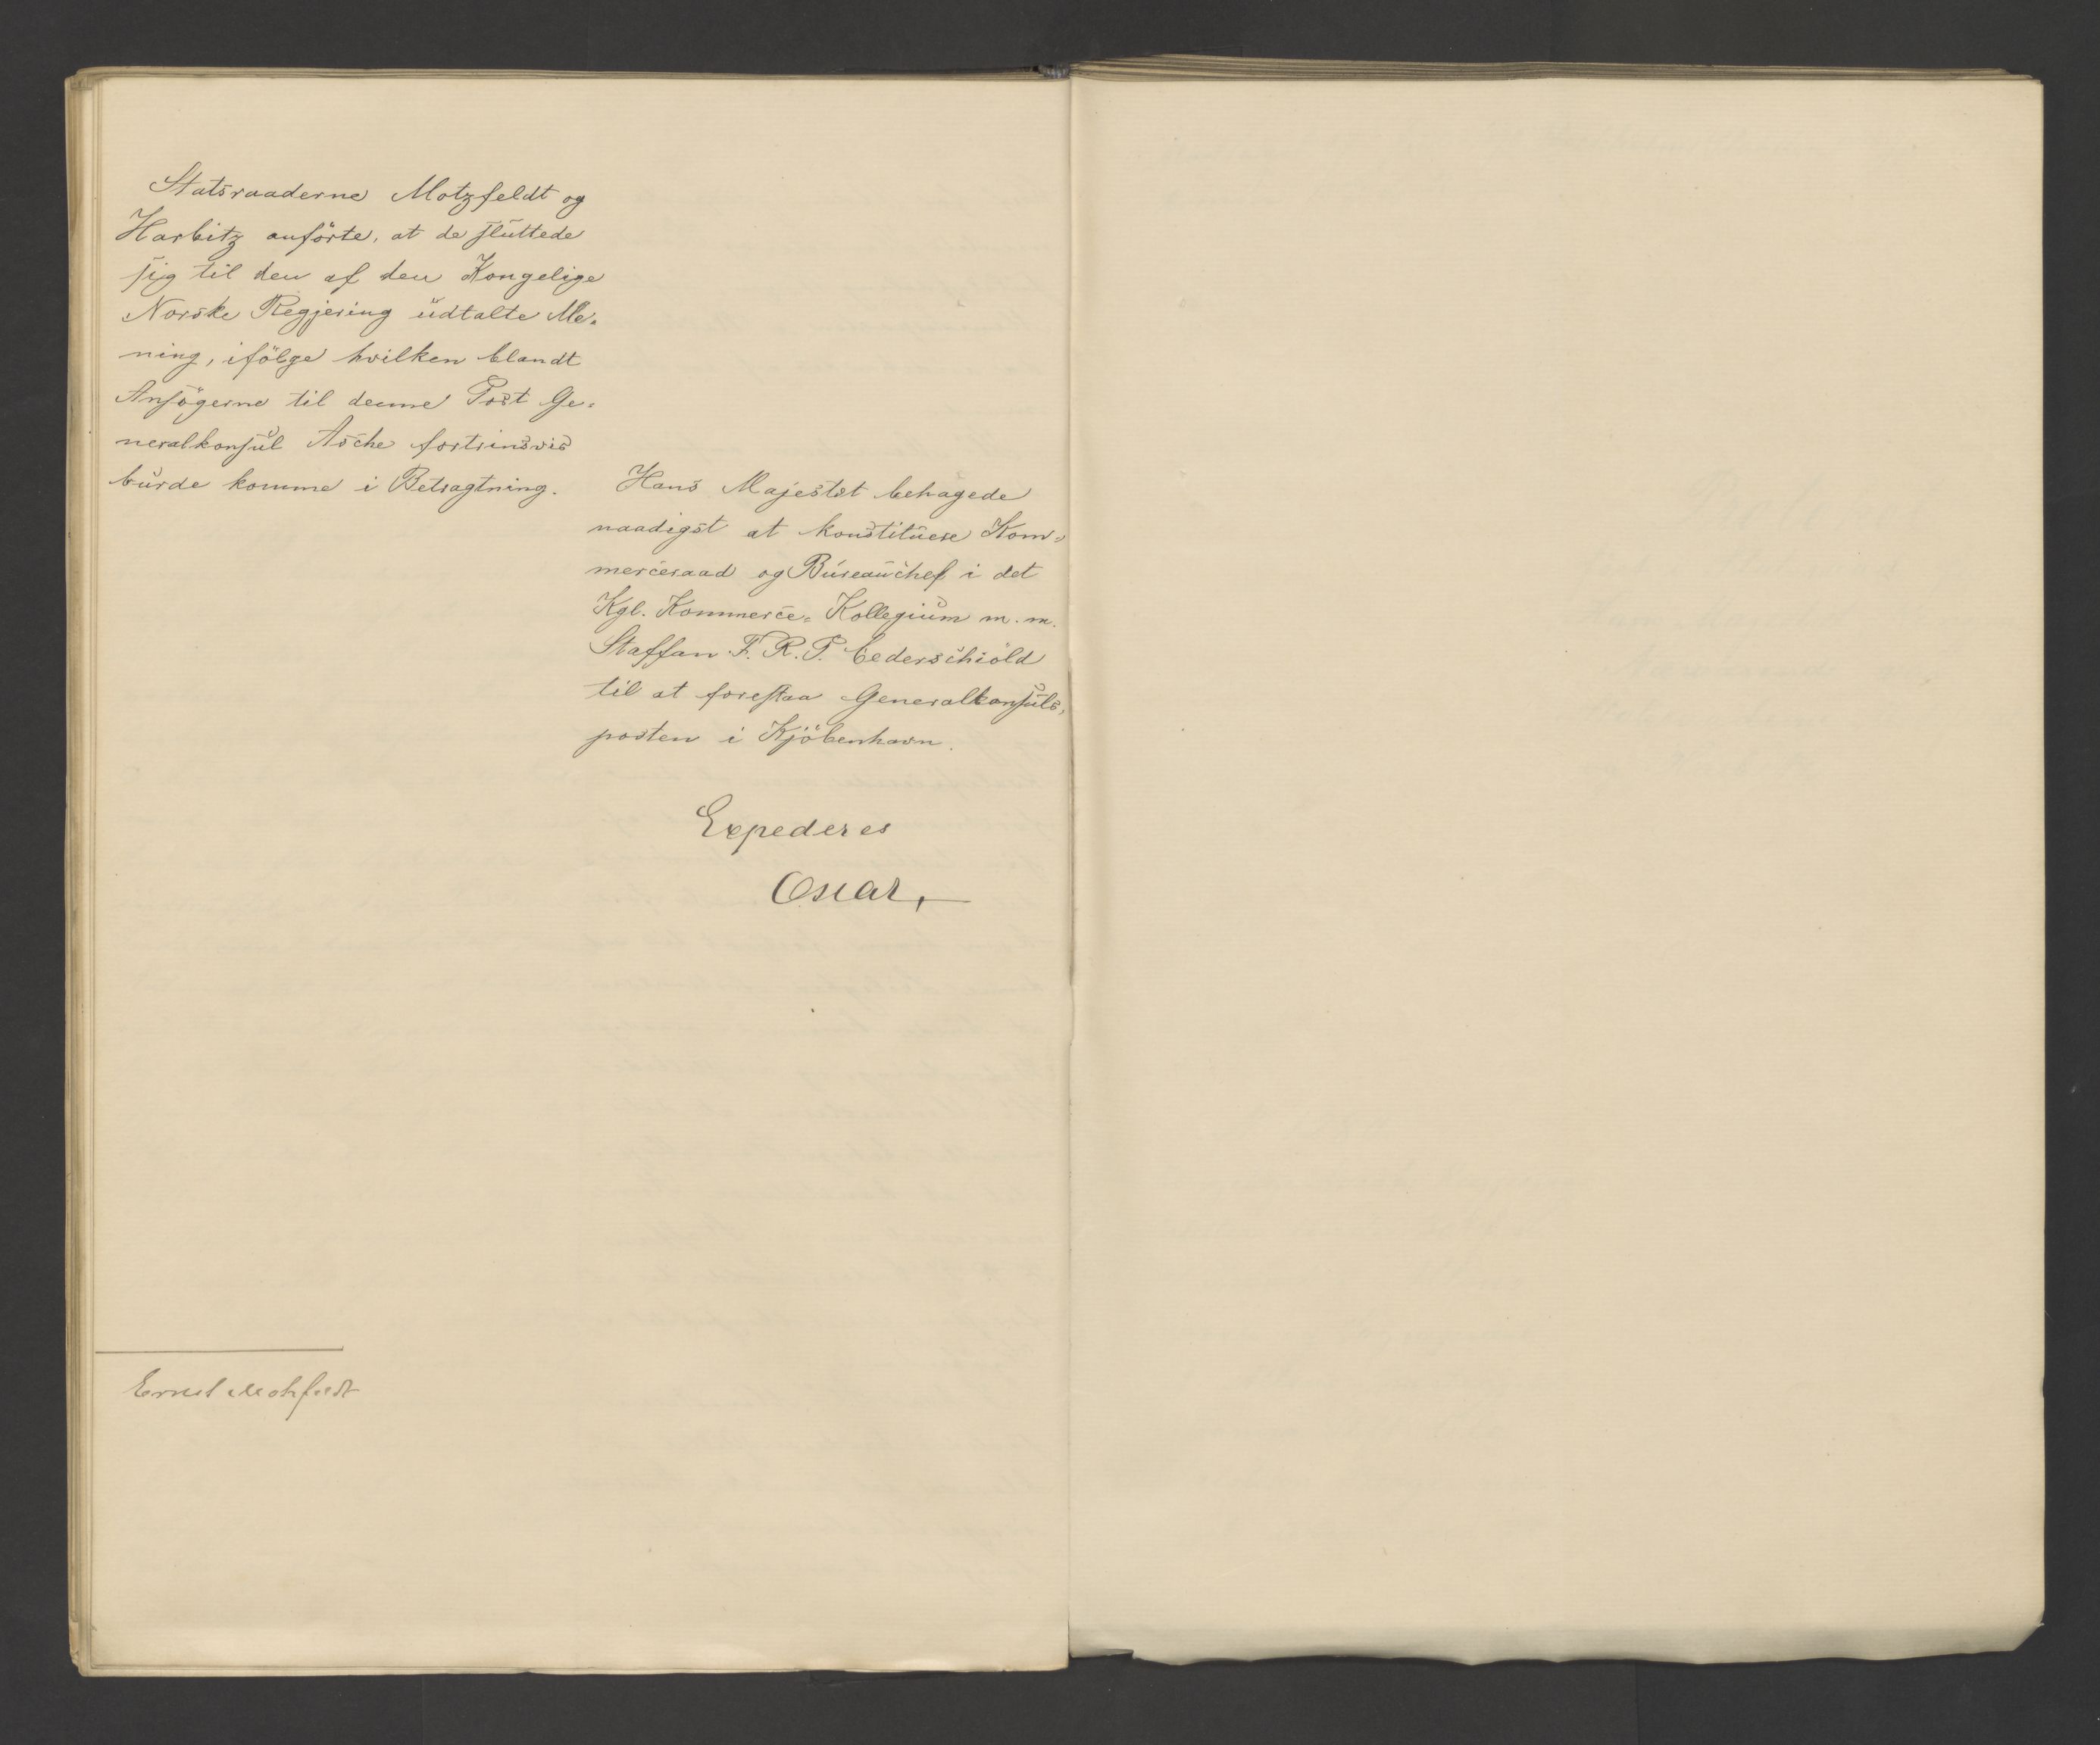 Statsraaderne Motzfeldt og
Harbitz anförte, at de sluttede
sig til den af den Kongelige
Norske Regjering udtalte Me=
ning, ifölge hvilken blandt
Ansögerne til denne Post Ge=
neralkonsul Asche fortrinsvis
burde komme i Betragtning.
Hans Majestet behagede
naadigst at konstituere Kom=
merceraad og Bureauchef i det
Kgl. Kommerce=Kollegium m. m.
Staffan F. R. P. Cederschiöld
til at forestaa Generalkonsuls=
posten i Kjöbenhavn.
Expederes
Oscar,
Ernst Motzfeldt